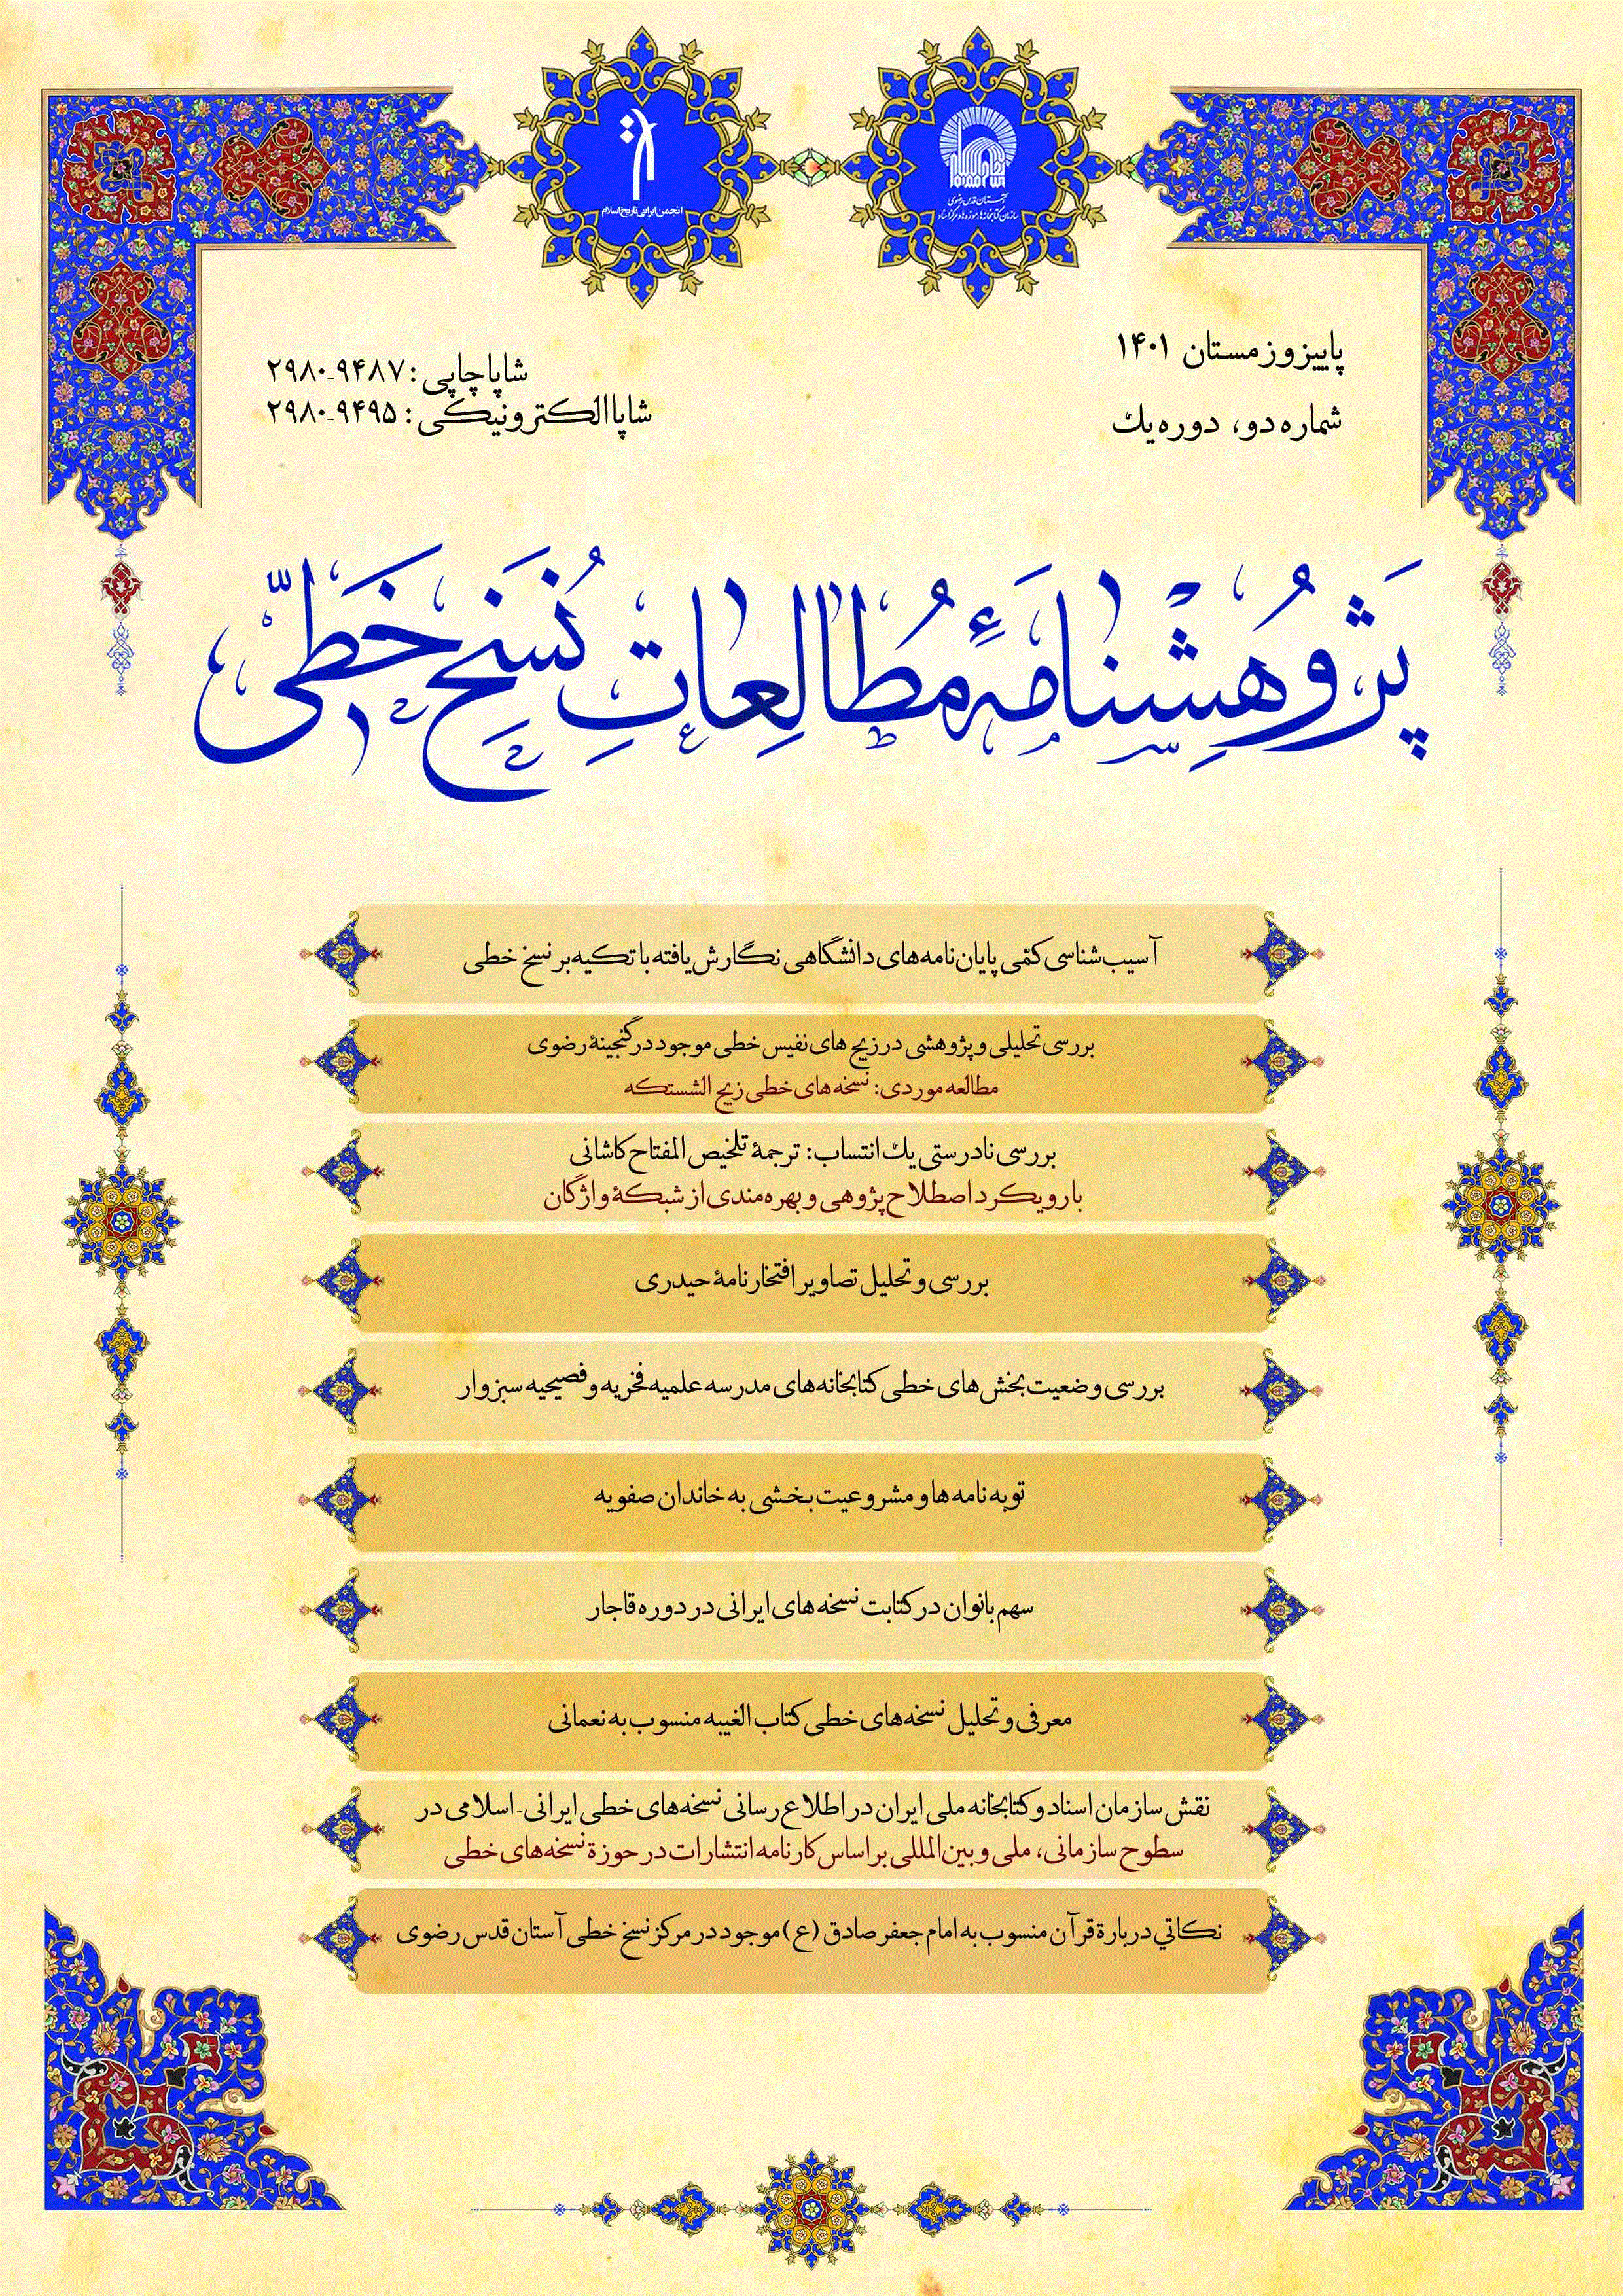 انجمن ایرانی تاریخ اسلام
آستان قدس رضوی
سازمان کتابخانه‌ها، موزه‌ها و مرکز اسناد
پاییز و زمستان ۱۴۰۱
شماره دو، دوره یك
شاپا چاپی: ۲۹۸۰-۹۴۸۷
شاپا الکترونیکی: ۲۹۸۰-۹۴۹۵
پَژوُهِشنامَهٔ مُطالِعاتِ نُسَخِ خَطّی
آسیب‌شناسی کمّی پایان‌نامه‌های دانشگاهی نگارش یافته با تکیه بر نسخ خطی
بررسی تحلیلی و پژوهشی در زیج های نفیس خطی موجود در گنجینهٔ رضوی
مطالعه موردی: نسخه‌های خطی زیج الشستکه
بررسی نادرستی یك انتساب: ترجمهٔ تلخیص المفتاح کاشانی
با رویکرد اصطلاح‌پژوهی و بهره‌مندی از شبکهٔ واژگان
بررسی و تحلیل تصاویر افتخارنامهٔ حیدری
بررسی وضعیت بخش‌های خطی کتابخانه‌های مدرسه علمیه فخریه و فصیحیه سبزوار
توبه نامه ها و مشروعیت بخشی به خاندان صفویه
سهم بانوان در کتابت نسخه های ایرانی در دوره قاجار
معرفی و تحلیل نسخه‌های خطی کتاب الغیبه منسوب به نعمانی
نقش سازمان اسناد و کتابخانه ملی ایران در اطلاع رسانی نسخه‌های خطی ایرانی-اسلامی در
سطوح سازمانی، ملی و بین‌المللی بر اساس کارنامه انتشارات در حوزة نسخه‌های خطی
نكاتي دربارة قرآن منسوب به امام جعفر صادق (ع) موجود در مرکز نسخ خطی آستان قدس رضوی